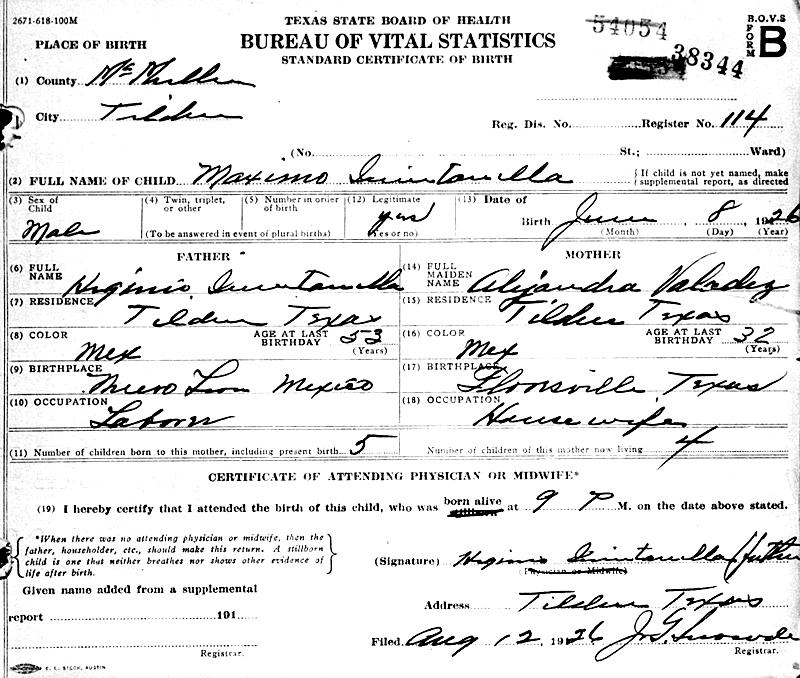 2671-618-100M
TEXAS STATE BOARD OF HEALTH
BUREAU OF VITAL STATISTICS
STANDARD CERTIFICATE OF BIRTH
54054
38344
B.O.V.S
FORM B
PLACE OF BIRTH
(1) County McMullen
City Tilden
Reg. Dis. No. Register No. 114
(No. St.; Ward)
(2) FULL NAME OF CHILD Maximo Quintanilla { If child is not yet named, make
supplemental report, as directed
(3) Sex of Child Male
(4) Twin, triplet, or other
(5) Number in order of birth
(To be answered in event of plural births)
(12) Legitimate yes
(Yes or no)
(13) Date of Birth June 8 1926
(Month) (Day) (Year)
FATHER
(6) FULL NAME Higinio Quintanilla
(7) RESIDENCE Tilden Texas
(8) COLOR Mex AGE AT LAST BIRTHDAY 53 (Years)
(9) BIRTHPLACE Nuevo Leon Mexico
(10) OCCUPATION Laborer
MOTHER
(14) FULL MAIDEN NAME Alejandra Valadez
(15) RESIDENCE Tilden Texas
(16) COLOR Mex AGE AT LAST BIRTHDAY 32 (Years)
(17) BIRTHPLACE Floresville Texas
(18) OCCUPATION Housewife
(11) Number of children born to this mother, including present birth 5 Number of children of this mother now living 4
CERTIFICATE OF ATTENDING PHYSICIAN OR MIDWIFE*
(19) I hereby certify that I attended the birth of this child, who was born alive at 9 P M. on the date above stated.
*When there was no attending physician or midwife, then the
father, householder, etc., should make this return. A stillborn
child is one that neither breathes nor shows other evidence of
life after birth.
(Signature) Higinio Quintanilla (father
(Physician or Midwife)
Given name added from a supplemental
report 191
Registrar.
Address Tilden Texas
Filed Aug 12, 1926
Registrar.
E. L. STECK, AUSTIN